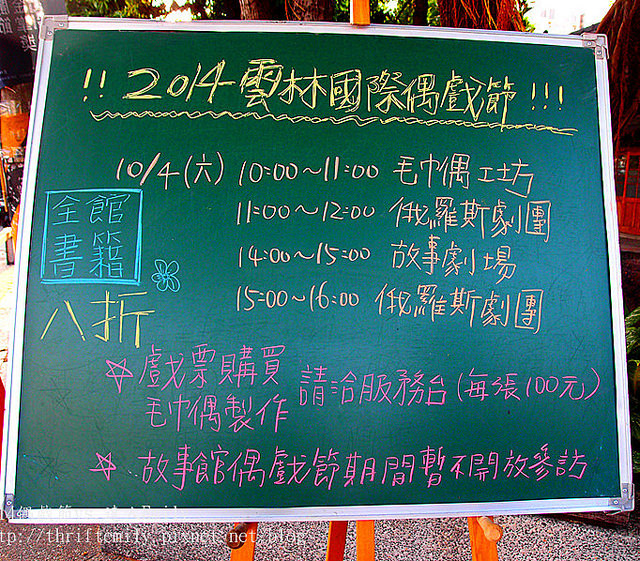 !! 2014雲林國際偶戲節 !!!
10/4(六) 10:00~11:00 毛巾偶工坊
11:00~12:00 俄羅斯劇團
14:00~15:00 故事劇場
15:00~16:00 俄羅斯劇團
全館
書籍
八折
☆戲票購買
毛巾偶製作
請洽服務台(每張100元)
☆故事館偶戲節期間暫不開放參訪
http://thriftemily.pixnet.net/blog